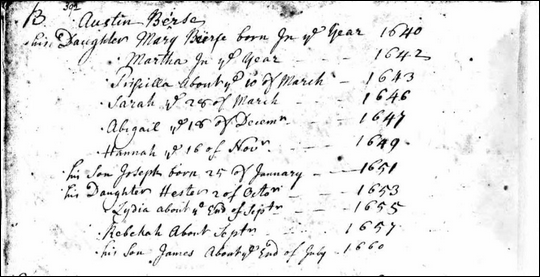 B. 392 Austin Berse
his Daughter Mary Bierse born In ye Year 1640
Martha In ye Year 1642
Priscilla About ye 10 of March - 1643
Sarah ye 28 of March - 1646
Abigail ye 18 of Decemr 1647
Hannah ye 16 of Novr - 1649
his Son Joseph born 25 of January - 1651
his Daughter Hester 2 of Octor - 1653
Lydia about ye End of Septr - 1655
Rebekah About Septr - 1657
his Son James About ye End of July - 1660